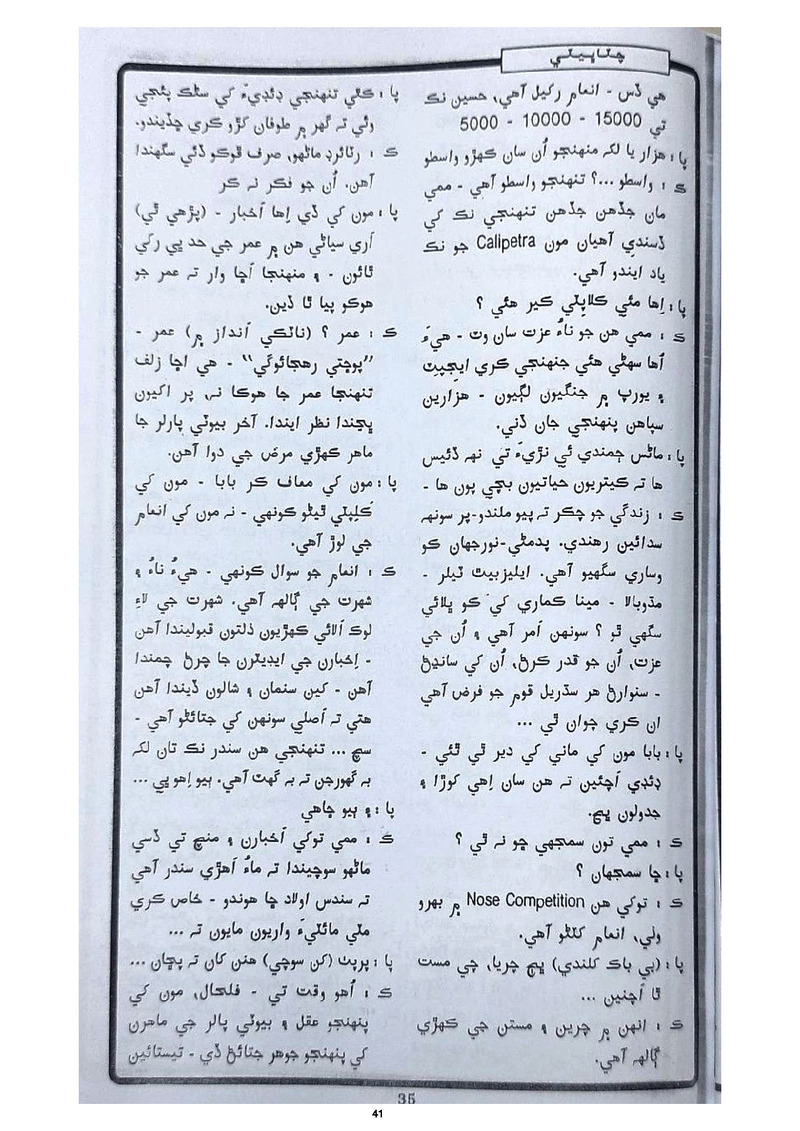 چٽاڀيٽي
هي ڏس - انعام رکيل آهي، حسين نڪ
تي 15000 - 10000 - 5000
پا : هزار يا لک منهنجو اُن سان ڪهڙو واسطو
ڪ : واسطو ...؟ تنهنجو واسطو آهي - ممي
مان جڏهن جڏهن تنهنجي نڪ کي
ڏسندي آهيان مون Calipetra جو نڪ
ياد ايندو آهي.
پا : اِها مئي ڪلاپٽي ڪير هئي ؟
ڪ : ممي هن جو ناءُ عزت سان وٺ - هيءَ
اُها سهڻي هئي جنهنجي ڪري ايجپٽ
۽ يورپ ۾ جنگيون لڳيون - هزارين
سپاهن پنهنجي جان ڏني.
پا : ماڻس ڄمندي ئي نڙيءَ تي نهه ڏئيس
ها ته ڪيتريون حياتيون بچي پون ها -
ڪ : زندگي جو چڪر ته پيو هلندو-پر سونهه
سدائين رهندي. پدمڻي-نورجهان ڪو
وساري سگهيو آهي. ايليزبيٿ ٽيلر -
مڌوبالا - مينا ڪماري کي ڪو ڀلائي
سگهي ٿو ؟ سونهن اَمر آهي ۽ اُن جي
عزت، اُن جو قدر ڪرڻ، اُن کي سانڍڻ
- سنوارڻ هر سڌريل قوم جو فرض آهي
ان ڪري چوان ٿي ...
پا : بابا مون کي ماني کي دير ٿي ٿئي -
ڊئڊي اَچئين ته هن سان اِهي ڪوڙا ۽
جدولون ڀڃ.
ڪ : ممي تون سمجهي ڇو نه ٿي ؟
پا : ڇا سمجهان ؟
ڪ : توکي هن Nose Competition ۾ بهرو
وٺي، انعام کٽڻو آهي.
پا : (بي باڪ کلندي) ڀڄ چريا، چي مست
ٿا اَچنين ...
ڪ : انهن ۾ چرين ۽ مستن جي ڪهڙي
ڳالهه آهي.
پا : ڪٿي تنهنجي ڊئڊيءَ کي سڻڪ پئجي
وئي ته گهر ۾ طوفان کڙو ڪري ڇڏيندو.
ڪ : رٽائرڊ ماڻهو، صرف ڦوڪو ڏئي سگهندا
آهن. اُن جو فڪر نه ڪر
پا : مون کي ڏي اِها اَخبار - (پڙهي ٿي)
اَري سياڻي هن ۾ عمر جي حد پي رکي
ٿائون - ۽ منهنجا اَڇا وار ته عمر جو
هوڪو پيا ٿا ڏين.
ڪ : عمر ؟ (ناٽڪي اَنداز ۾) عمر -
”پوڇتي رهجائوگي“ - هي اڇا زلف
تنهنجا عمر جا هوڪا نه، پر اکيون
ڀڃندا نظر ايندا. آخر بيوٽي پارلر جا
ماهر ڪهڙي مرض جي دوا آهن.
پا : مون کي معاف ڪر بابا - مون کي
ڪَلپٽي ٿيڻو ڪونهي - نه مون کي انعام
جي لوڙ آهي.
ڪ : انعام جو سوال ڪونهي - هيءُ ناءُ ۽
شهرت جي ڳالهه آهي. شهرت جي لاءِ
لوڪ اَلائي ڪهڙيون ذلتون قبوليندا آهن
- اِخبارن جي ايڊيٽرن جا چرڻ چمندا
آهن - کين سنمان ۽ شالون ڏيندا آهن
هتي ته اَصلي سونهن کي جتائڻو آهي -
سچ ... تنهنجي هن سندر نڪ تان لک
به گهورجن ته به گهٽ آهي. ٻيو اِهو پي ...
پا : ۽ ٻيو ڇاهي
ڪ : ممي توکي اَخبارن ۽ منچ تي ڏسي
ماڻهو سوچيندا ته ماءُ اَهڙي سندر آهي
ته سندس اولاد ڇا هوندو - خاص ڪري
مٽي مائٽيءَ واريون مايون ته ...
پا : پرپٺ (ڪن سوچي) هنن کان ته پڇان ...
ڪ : اُهو وقت تي - فلحال، مون کي
پنهنجو عقل ۽ بيوٽي پالر جي ماهرن
کي پنهنجو جوهر جتائڻ ڏي - تيستائين
35
41